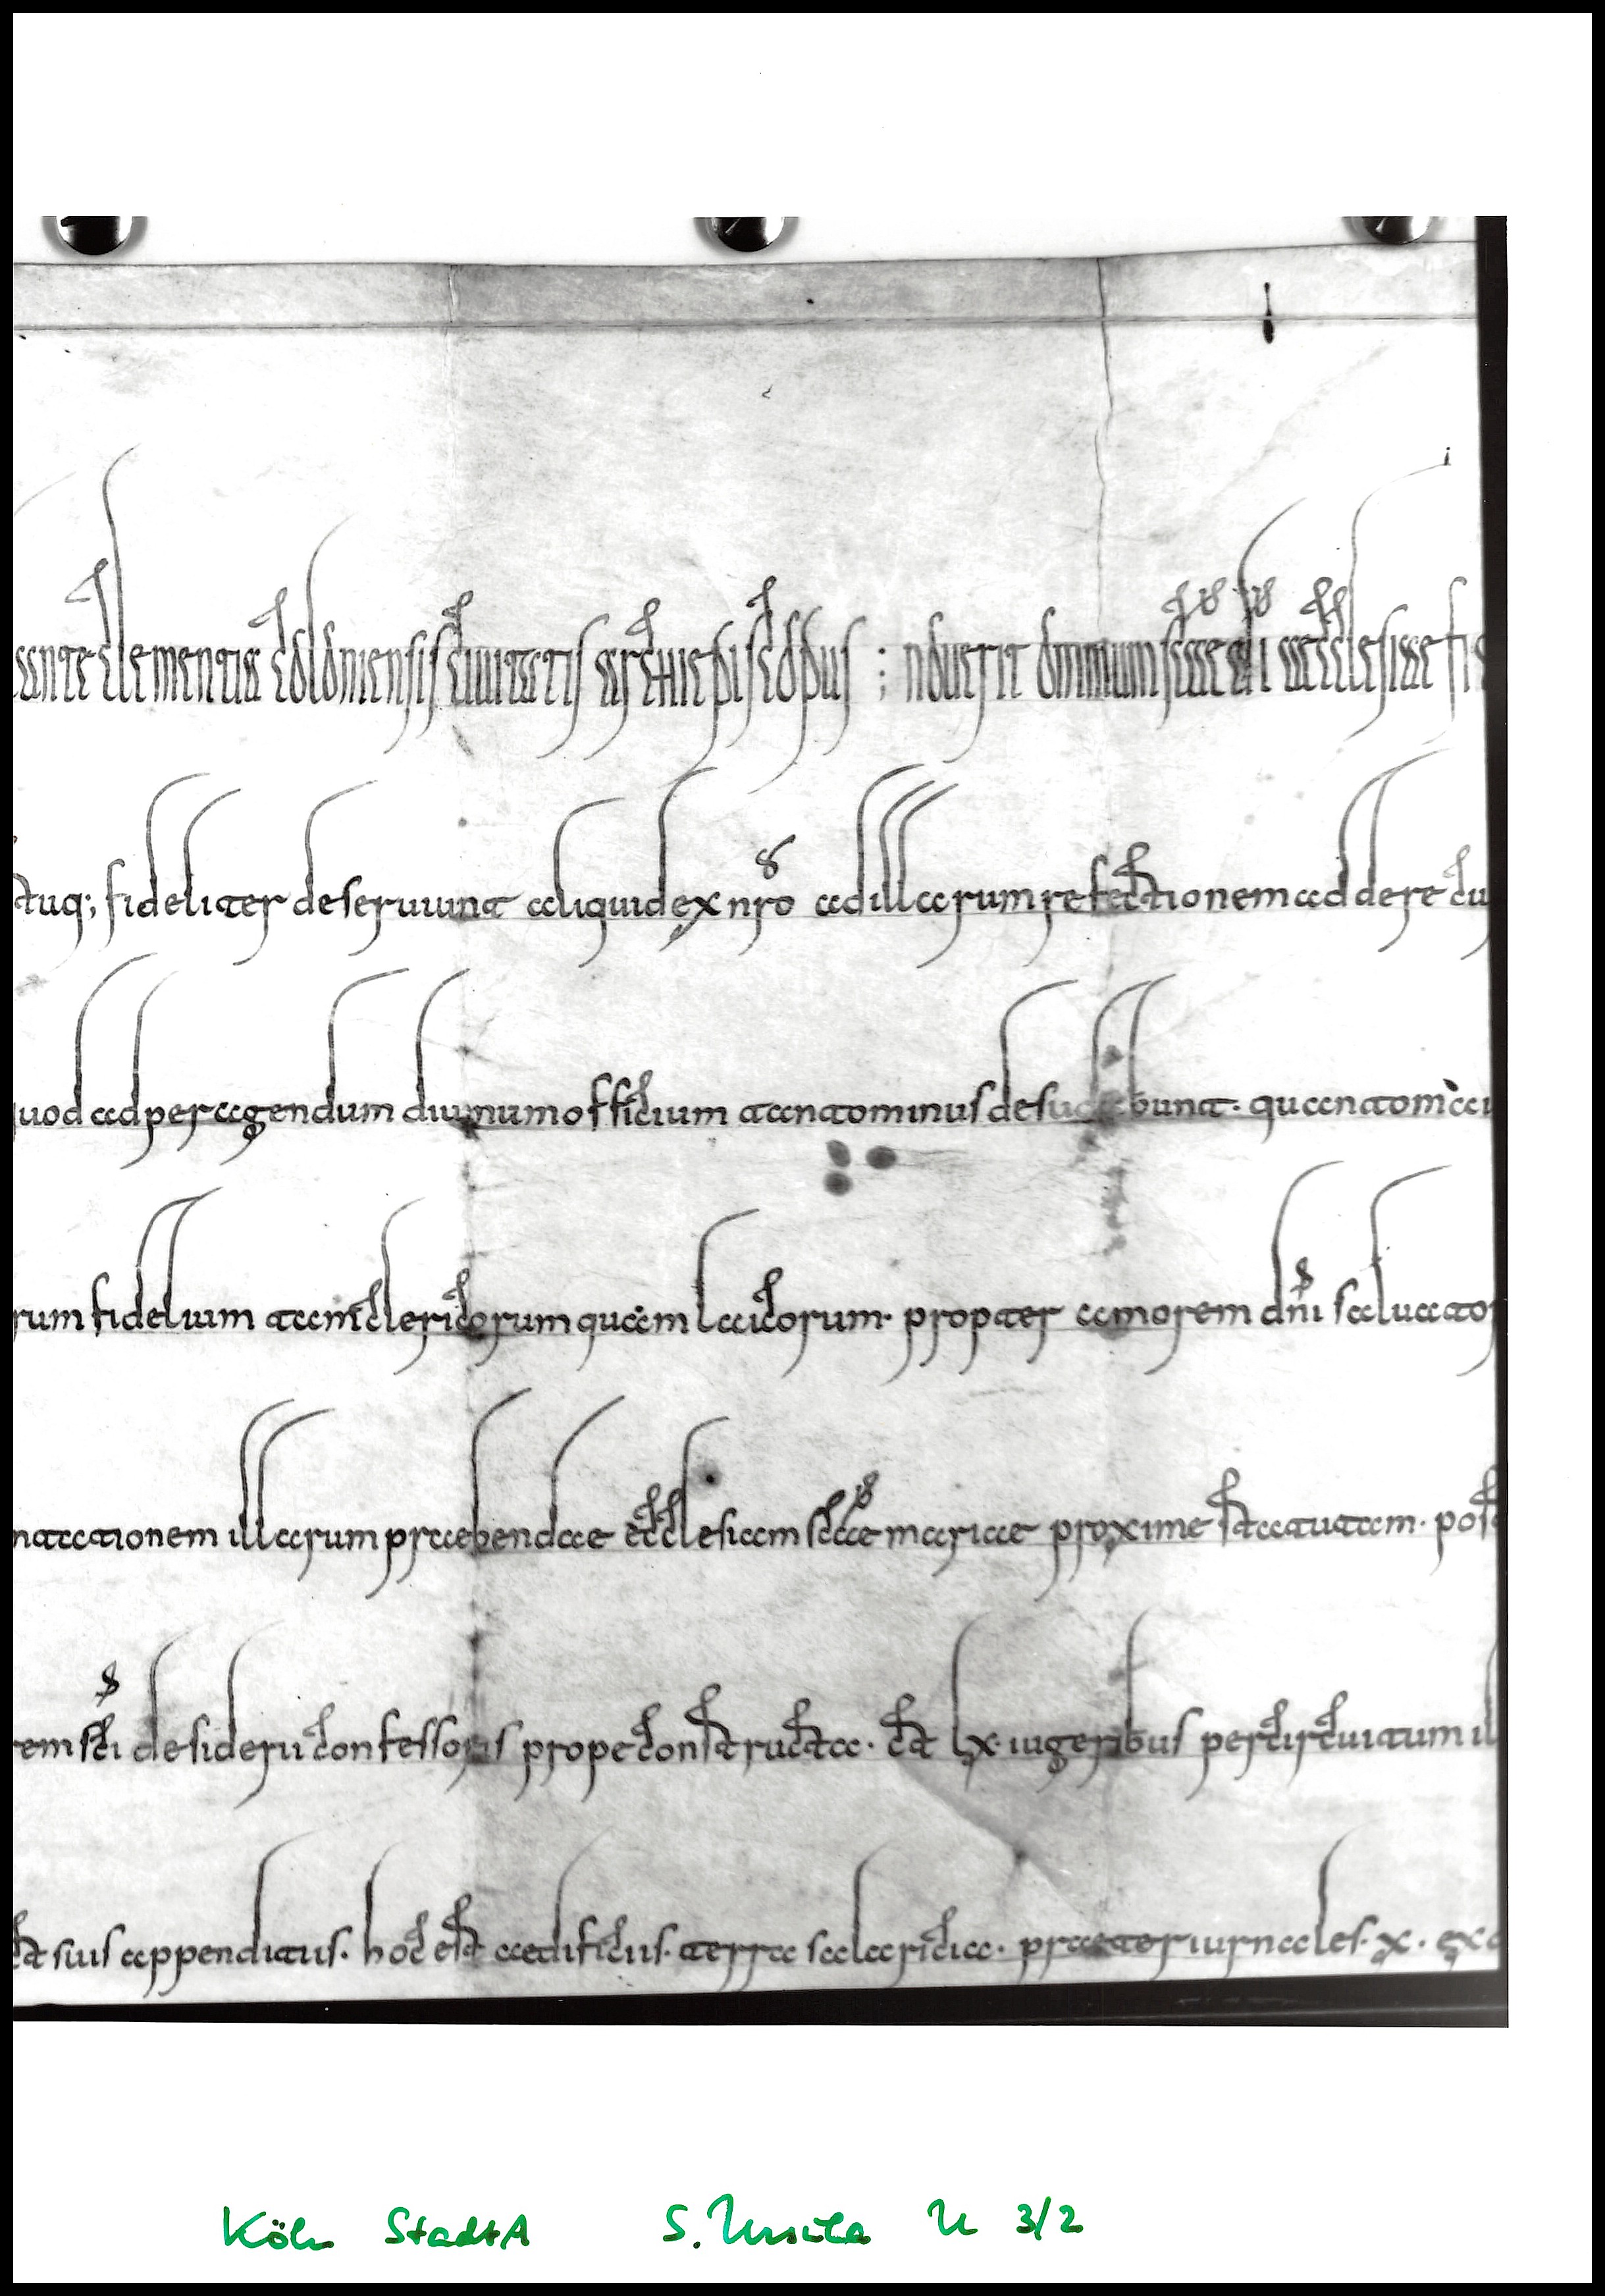 ante clementia coloniensis ciuitatis archiepiscopus ; nouerit omnium scae di aecclesiae fi
tuq; fideliter deseruiunt aliquid ex nro ad illarum refectionem addere cu
uod ad peragendum diurnum officium tanto minus desudabunt. quanto mai
rum fidelium tam clericorum quam laicorum. propter amorem dni saluator
ntationem illarum praebendae ecclesiam scae mariae proxime statutam. post
rem sci desiderii confessoris prope constructa. et lx. iugeribus per circuitum il
et suis appenditiis. hoc est aedificiis. terra salaricia. praeter iurnales. x. ex
Köln StadtA S. Ursula U 3/2